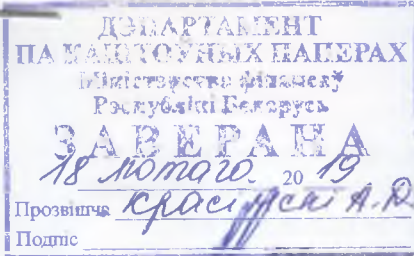 ДЭПАРТАМЕНТ
ПА КАШТОЎНЫХ ПАПЕРАХ
Міністэрства фінансаў
Рэспублікі Беларусь
ЗАВЕРАНА
18 лютага 20 19
Прозвішча А.
Подпіс